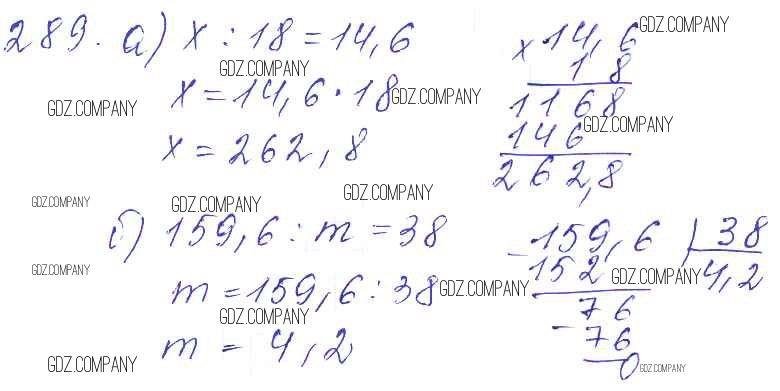 289. а) x : 18 = 14,6
x = 14,6 · 18
x = 262,8
× 14,6
18
1168
146
262,8
б) 159,6 : m = 38
m = 159,6 : 38
m = 4,2
- 159,6 | 38
152 4,2
76
- 76
0
GDZ.COMPANY
GDZ.COMPANY
GDZ.COMPANY
GDZ.COMPANY
GDZ.COMPANY
GDZ.COMPANY
GDZ.COMPANY
GDZ.COMPANY
GDZ.COMPANY
GDZ.COMPANY
GDZ.COMPANY
GDZ.COMPANY
GDZ.COMPANY
GDZ.COMPANY